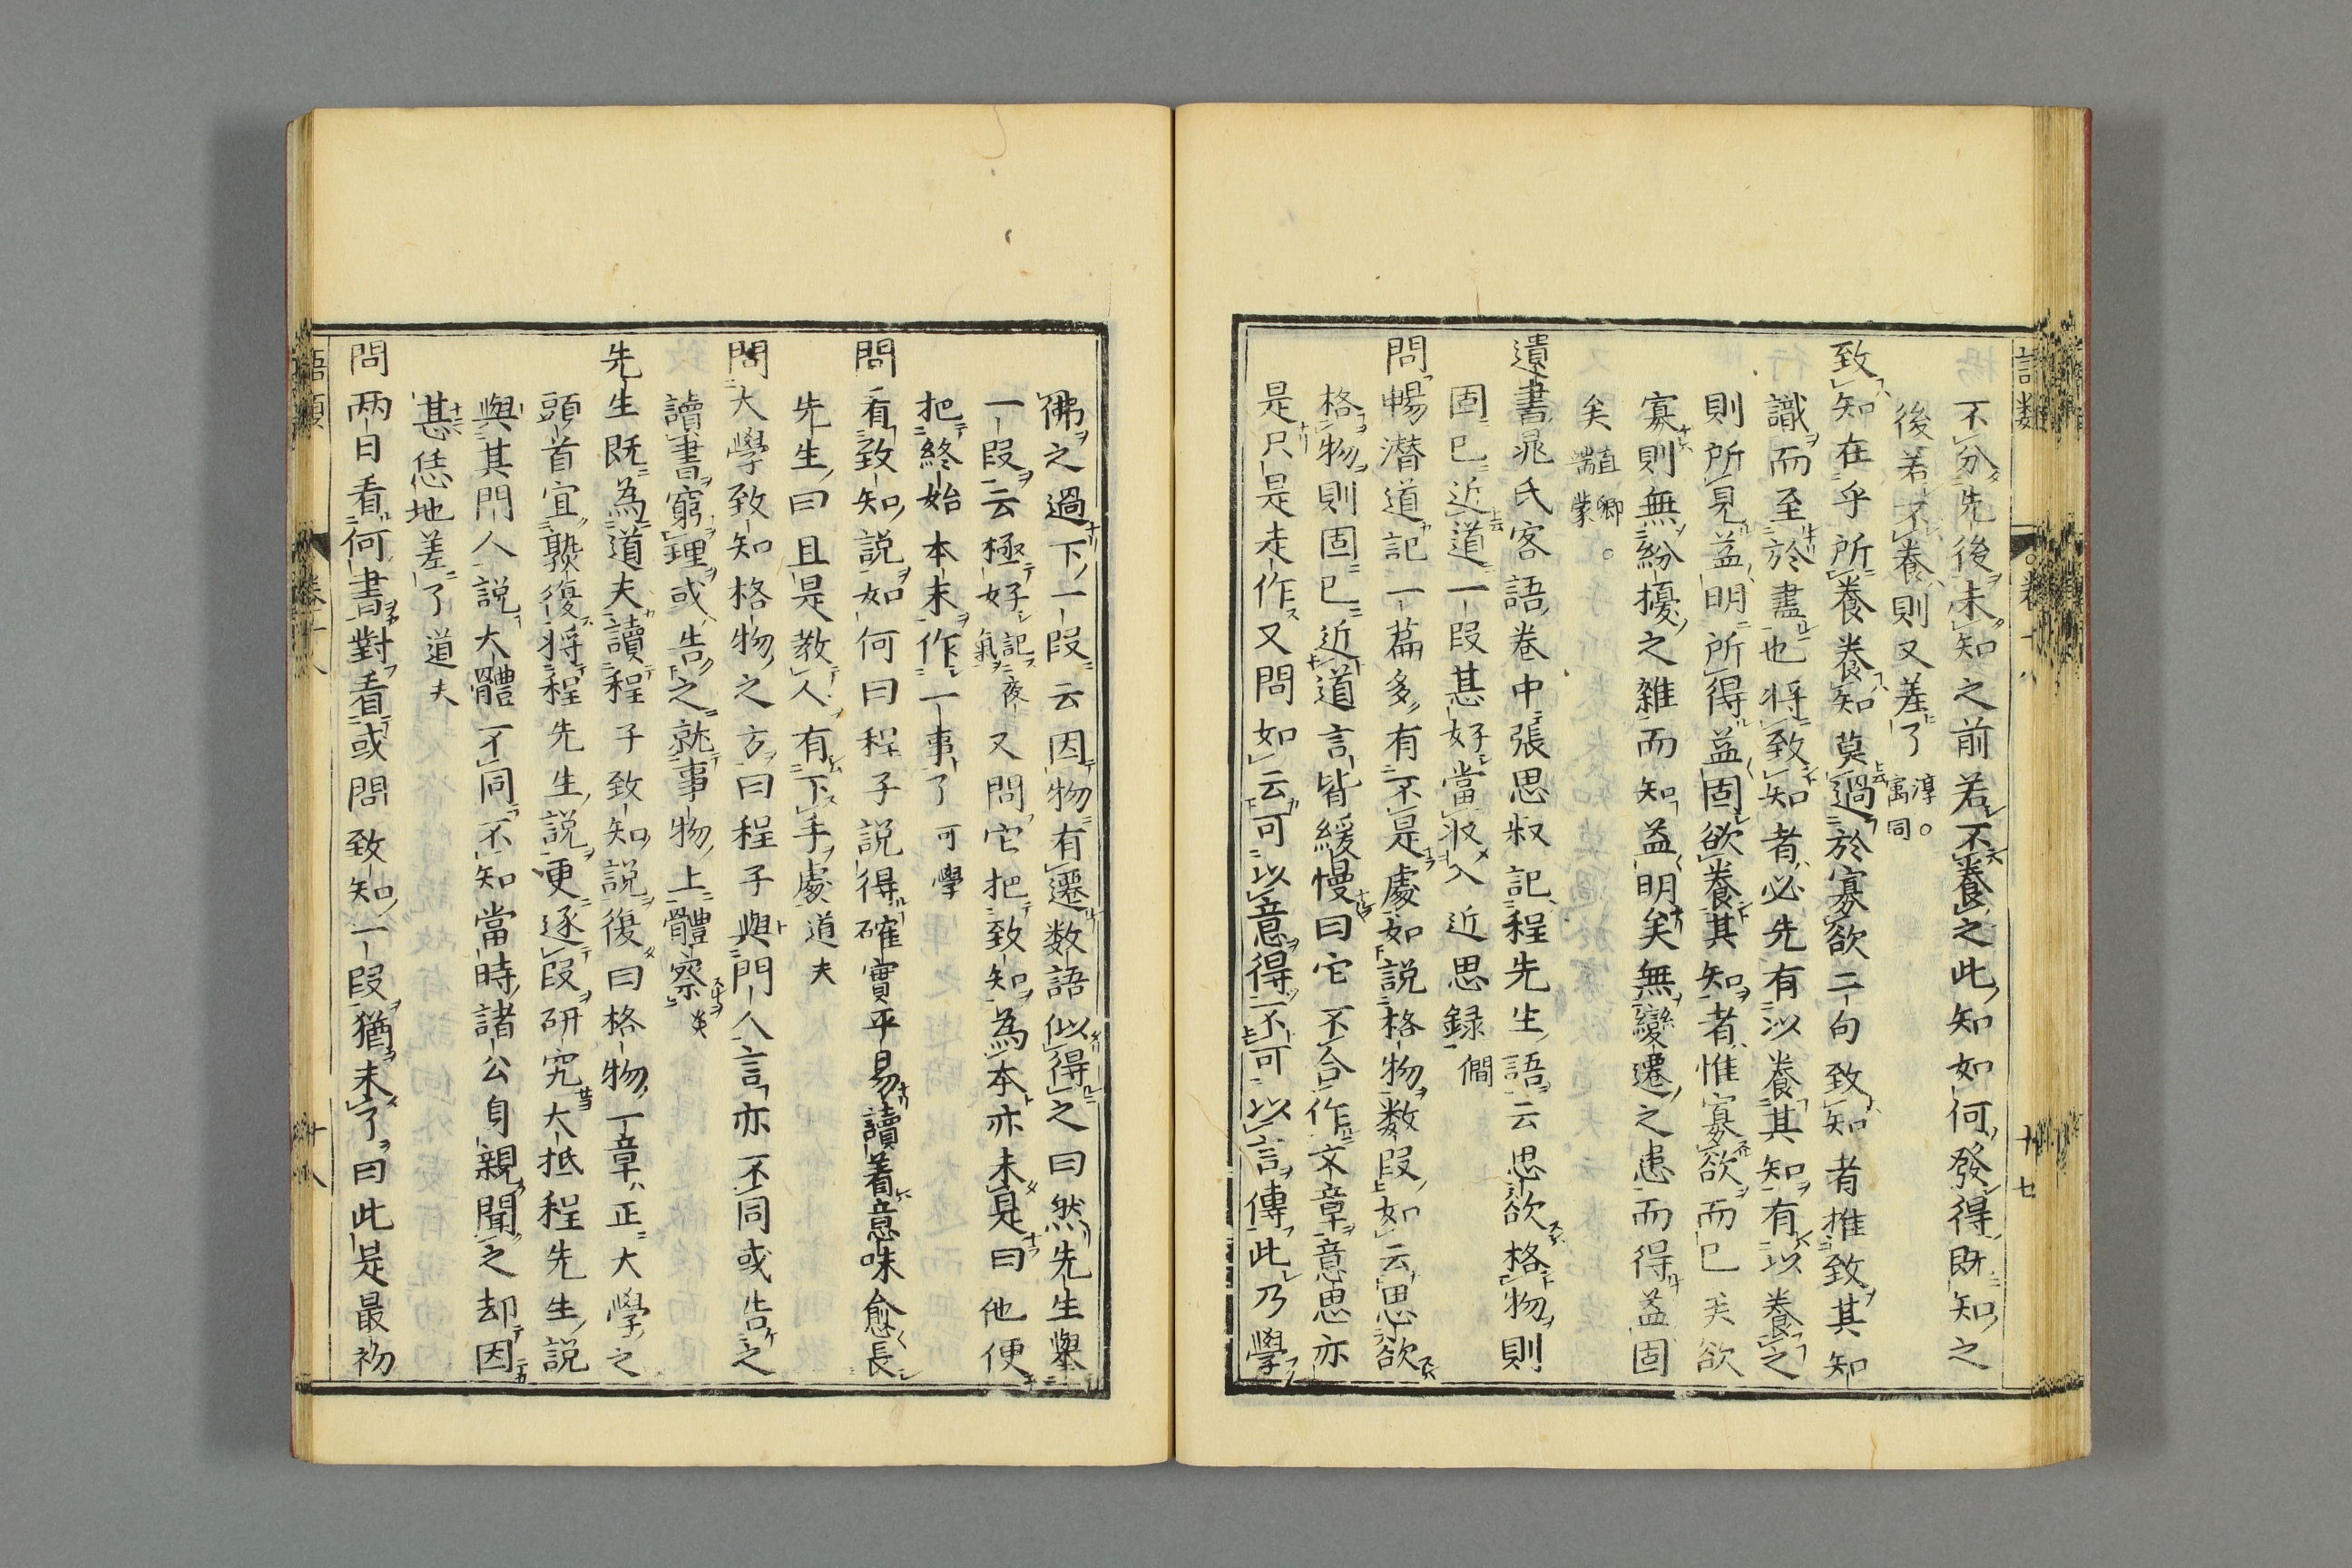 不分先後未知之前若不養之此知如何發得既知之
後若不養則又差了淳○寓同
致知在乎所養養知莫過於寡欲二句致知者推致其知
識而至於盡也将致知者必先有以養其知有以養之
則所見益明所得益固欲養其知者惟寡欲而已矣欲
寡則無紛擾之雜而知益明矣無變遷之患而得益固
矣直卿○端蒙
遺書晁氏客語卷中張思叔記程先生語云思欲格物則
固已近道一段甚好當收入近思録僩
問暢潜道記一篇多有不是處如說格物数段如云思欲
格物則固已近道言皆緩慢曰它不合作文章意思亦
是只是走作又問如云可以意得不可以言傳此乃學
佛之過下一段云因物有遷数語似得之曰然先生舉
一段云極好記夜氣又問它把致知為本亦未是曰他便
把終始本末作一事了可學
問看致知說如何曰程子說得確實平易讀着意味愈長
先生曰且是教人有下手處道夫
問大學致知格物之方曰程子與門人言亦不同或告之
讀書窮理或告之就事物上體察炎
先生既為道夫讀程子致知說復曰格物一章正大學之
頭首宜熟復将程先生說更逐段研究大抵程先生說
與其門人說大體不同不知當時諸公身親聞之却因
甚恁地差了道夫
問两日看何書對看或問致知一段猶未了曰此是最初
語類
卷十八
十七
十八